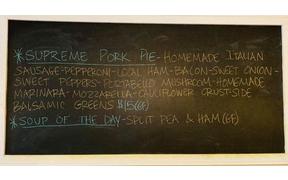 *SUPREME PORK PIE-HOMEMADE ITALIAN
SAUSAGE-PEPPERONI-LOCAL HAM-BACON-SWEET ONION-
SWEET PEPPERS-PORTABELLO MUSHROOM-HOMEMADE
MARINARA-MOZZARELLA-CAULIFLOWER CRUST-SIDE
BALSAMIC GREENS $15(GF)
*SOUP OF THE DAY-SPLIT PEA & HAM(GF)